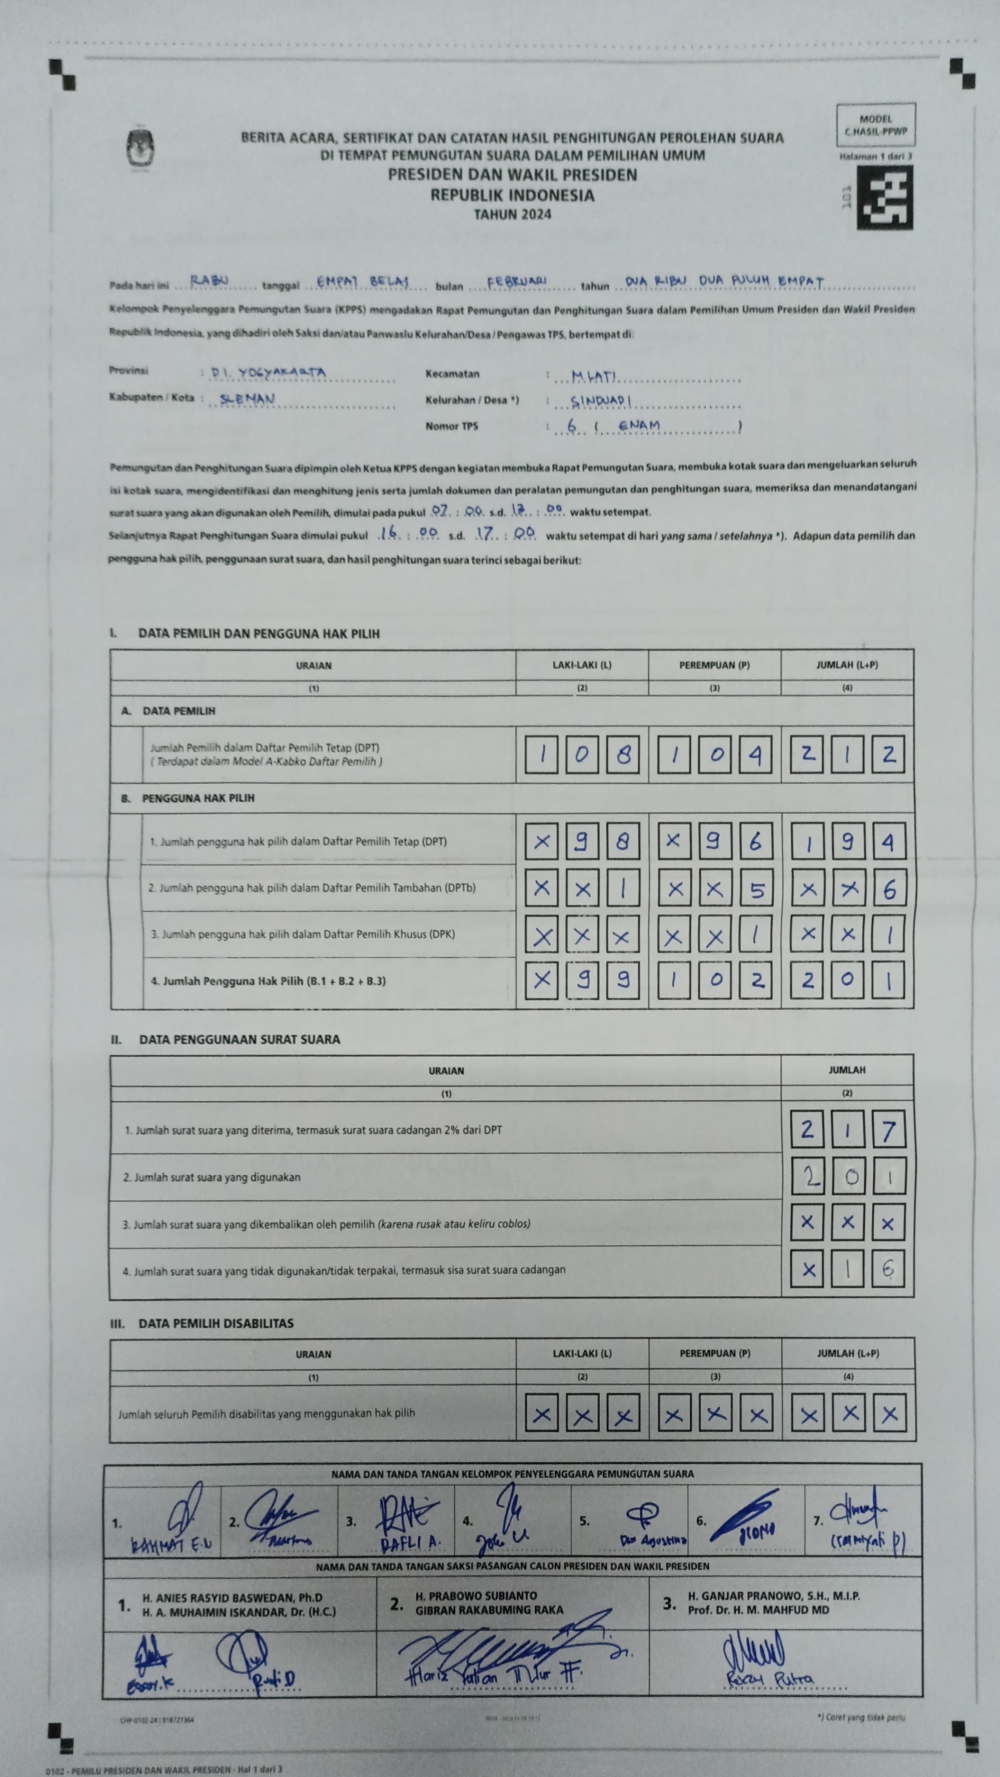 MODEL
C.HASIL-PPWP
Halaman 1 dari 3
101
BERITA ACARA, SERTIFIKAT DAN CATATAN HASIL PENGHITUNGAN PEROLEHAN SUARA
DI TEMPAT PEMUNGUTAN SUARA DALAM PEMILIHAN UMUM
PRESIDEN DAN WAKIL PRESIDEN
REPUBLIK INDONESIA
TAHUN 2024
Pada hari ini RABU tanggal EMPAT BELAS bulan FEBRUARI tahun DUA RIBU DUA PULUH EMPAT
Kelompok Penyelenggara Pemungutan Suara (KPPS) mengadakan Rapat Pemungutan dan Penghitungan Suara dalam Pemilihan Umum Presiden dan Wakil Presiden
Republik Indonesia, yang dihadiri oleh Saksi dan/atau Panwaslu Kelurahan/Desa / Pengawas TPS, bertempat di:
Provinsi : D.I. YOGYAKARTA Kecamatan : MLATI
Kabupaten / Kota : SLEMAN Kelurahan / Desa *) : SINDUADI
Nomor TPS : 6 ( ENAM )
Pemungutan dan Penghitungan Suara dipimpin oleh Ketua KPPS dengan kegiatan membuka Rapat Pemungutan Suara, membuka kotak suara dan mengeluarkan seluruh
isi kotak suara, mengidentifikasi dan menghitung jenis serta jumlah dokumen dan peralatan pemungutan dan penghitungan suara, memeriksa dan menandatangani
surat suara yang akan digunakan oleh Pemilih, dimulai pada pukul 07 : 00 s.d. 13 : 00 waktu setempat.
Selanjutnya Rapat Penghitungan Suara dimulai pukul 16 : 00 s.d. 17 : 00 waktu setempat di hari yang sama / setelahnya *). Adapun data pemilih dan
pengguna hak pilih, penggunaan surat suara, dan hasil penghitungan suara terinci sebagai berikut:
I. DATA PEMILIH DAN PENGGUNA HAK PILIH
URAIAN LAKI-LAKI (L) PEREMPUAN (P) JUMLAH (L+P)
(1) (2) (3) (4)
A. DATA PEMILIH
Jumlah Pemilih dalam Daftar Pemilih Tetap (DPT) 1 0 8 1 0 4 2 1 2
( Terdapat dalam Model A-Kabko Daftar Pemilih )
B. PENGGUNA HAK PILIH
1. Jumlah pengguna hak pilih dalam Daftar Pemilih Tetap (DPT) X 9 8 X 9 6 1 9 4
2. Jumlah pengguna hak pilih dalam Daftar Pemilih Tambahan (DPTb) X X 1 X X 5 X X 6
3. Jumlah pengguna hak pilih dalam Daftar Pemilih Khusus (DPK) X X X X X 1 X X 1
4. Jumlah Pengguna Hak Pilih (B.1 + B.2 + B.3) X 9 9 1 0 2 2 0 1
II. DATA PENGGUNAAN SURAT SUARA
URAIAN JUMLAH
(1) (2)
1. Jumlah surat suara yang diterima, termasuk surat suara cadangan 2% dari DPT 2 1 7
2. Jumlah surat suara yang digunakan 2 0 1
3. Jumlah surat suara yang dikembalikan oleh pemilih (karena rusak atau keliru coblos) X X X
4. Jumlah surat suara yang tidak digunakan/tidak terpakai, termasuk sisa surat suara cadangan X 1 6
III. DATA PEMILIH DISABILITAS
URAIAN LAKI-LAKI (L) PEREMPUAN (P) JUMLAH (L+P)
(1) (2) (3) (4)
Jumlah seluruh Pemilih disabilitas yang menggunakan hak pilih X X X X X X X X X
NAMA DAN TANDA TANGAN KELOMPOK PENYELENGGARA PEMUNGUTAN SUARA
1. 2. 3. 4. 5. 6. 7.
RAHMAT E.N RAFLI A. Dwi Agustina
NAMA DAN TANDA TANGAN SAKSI PASANGAN CALON PRESIDEN DAN WAKIL PRESIDEN
1. H. ANIES RASYID BASWEDAN, Ph.D
H. A. MUHAIMIN ISKANDAR, Dr. (H.C.)
2. H. PRABOWO SUBIANTO
GIBRAN RAKABUMING RAKA
3. H. GANJAR PRANOWO, S.H., M.I.P.
Prof. Dr. H. M. MAHFUD MD
Rudi D
Putra
*) Coret yang tidak perlu
0102 - PEMILU PRESIDEN DAN WAKIL PRESIDEN - Hal 1 dari 3